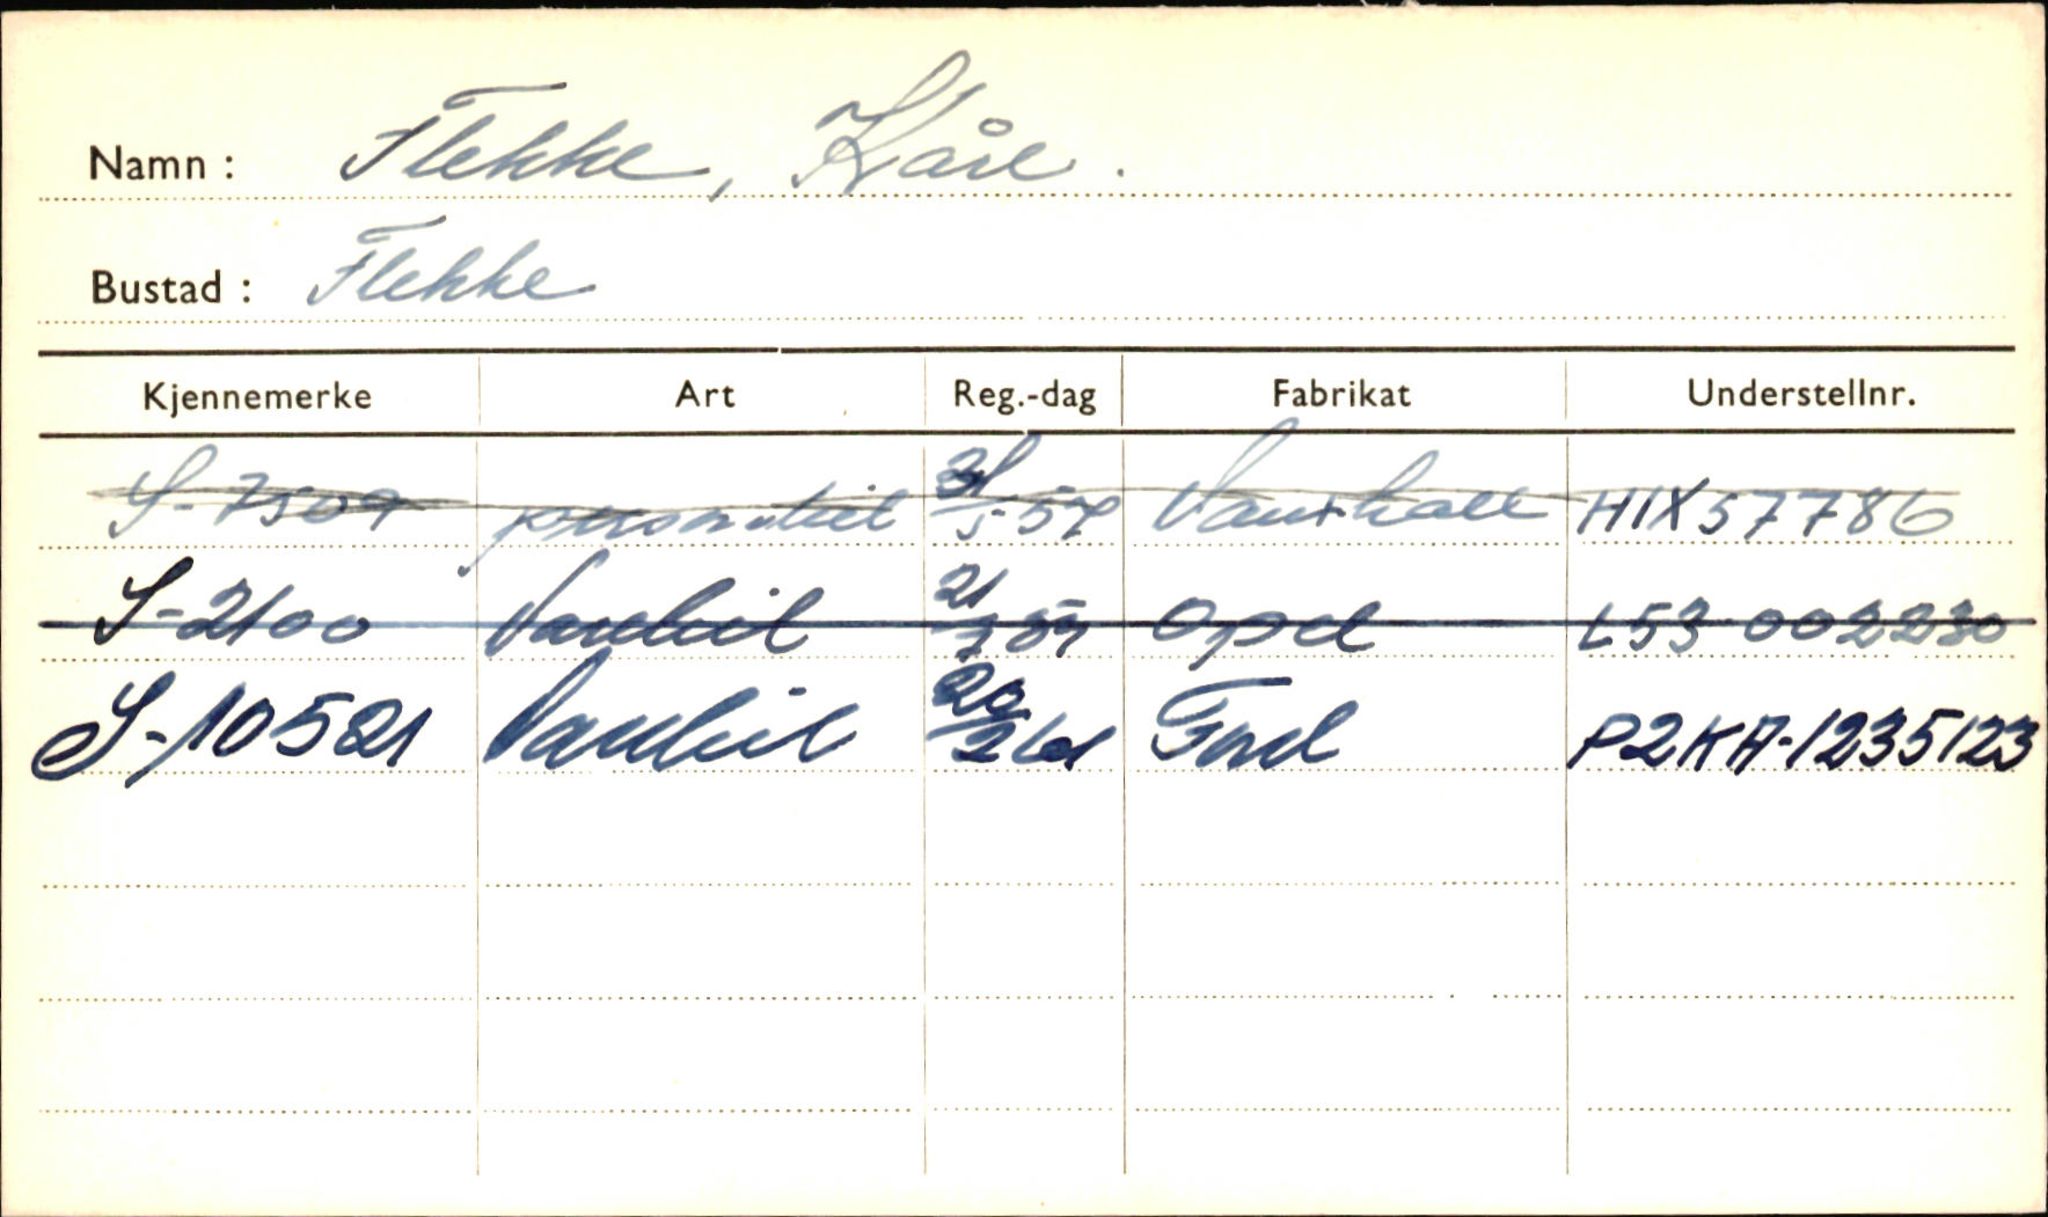 Namn: Flekke, Kåre.
Bustad: Flekke
Kjennemerke Art Reg.-dag Fabrikat Understellnr.
S-7507 personbil 31/5-57 Vauxhall HIX57786
S-2100 Varebil 21/7 59 Opel L53-002230
S-10521 Varebil 20/2 61 Ford P2KA-1235123